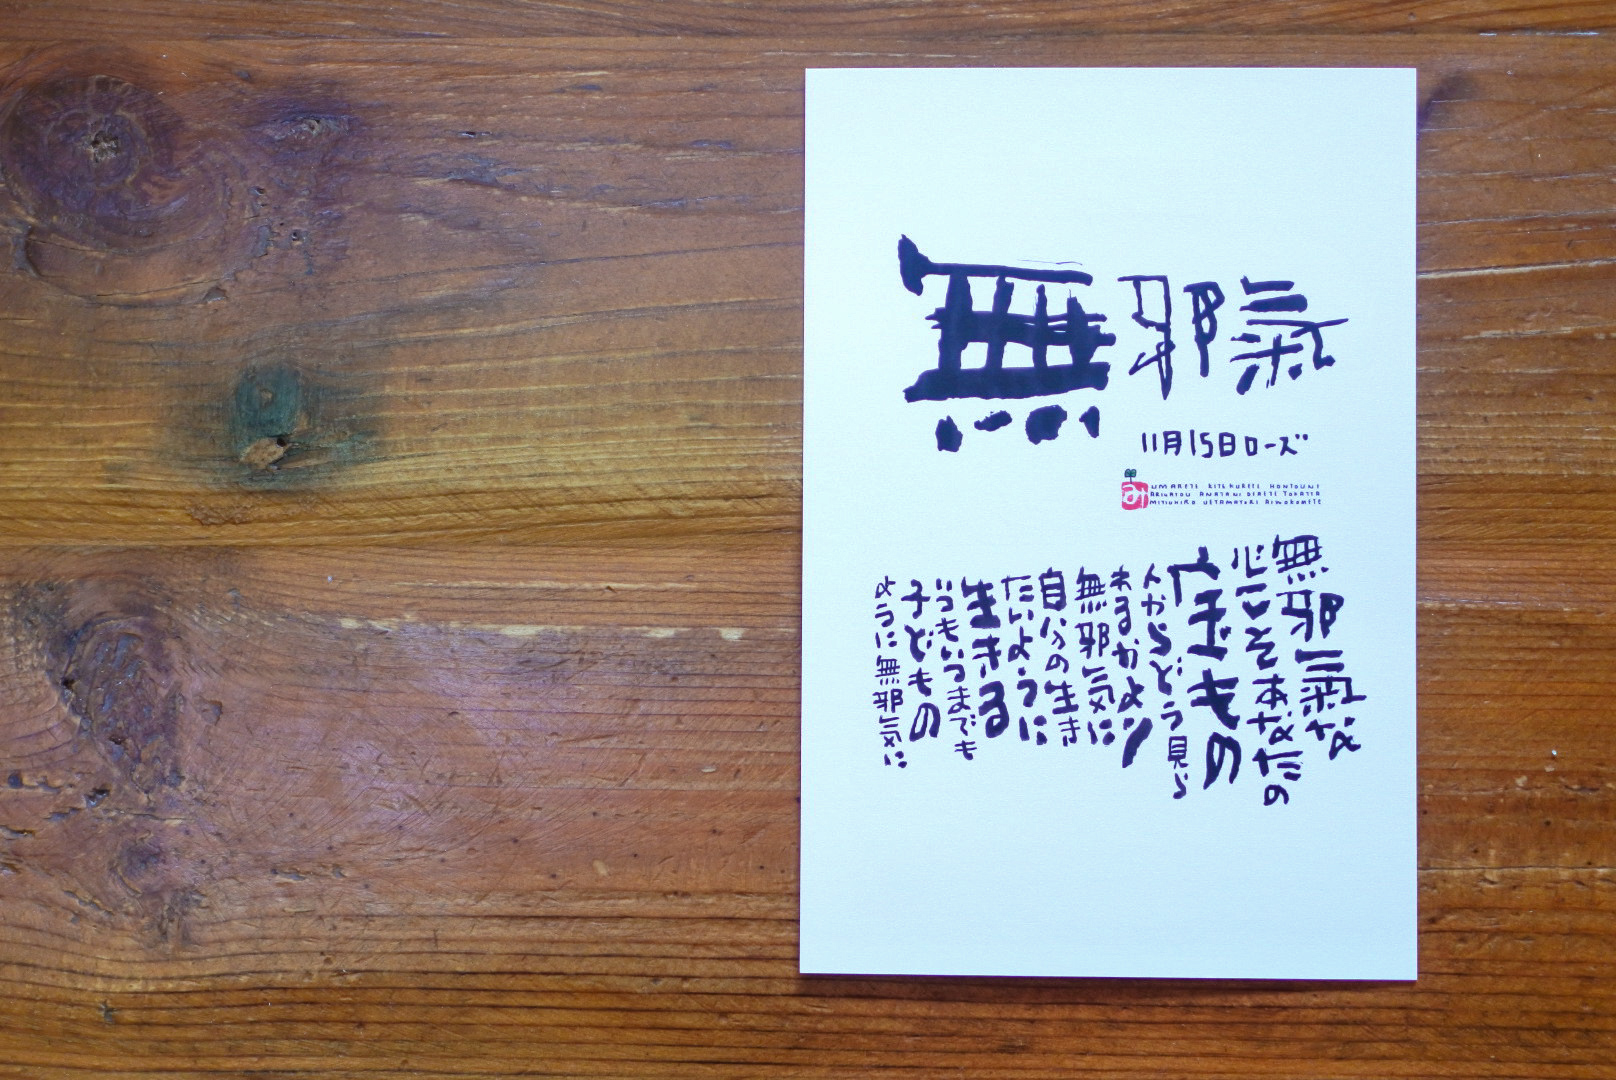 無邪氣
11月15日ローズ
み
UMARETE KITEKURETE HONTOUNI
ARIGATOU ANATANI DEAETE YOKATTA
MITUHIRO UETAMATUKI
無邪氣な
心こそあなたの
宝もの
人からどう見ら
れるかより
無邪気に
自分の生き
たいように
生きる
いつもいつまでも
子どもの
ように無邪気に